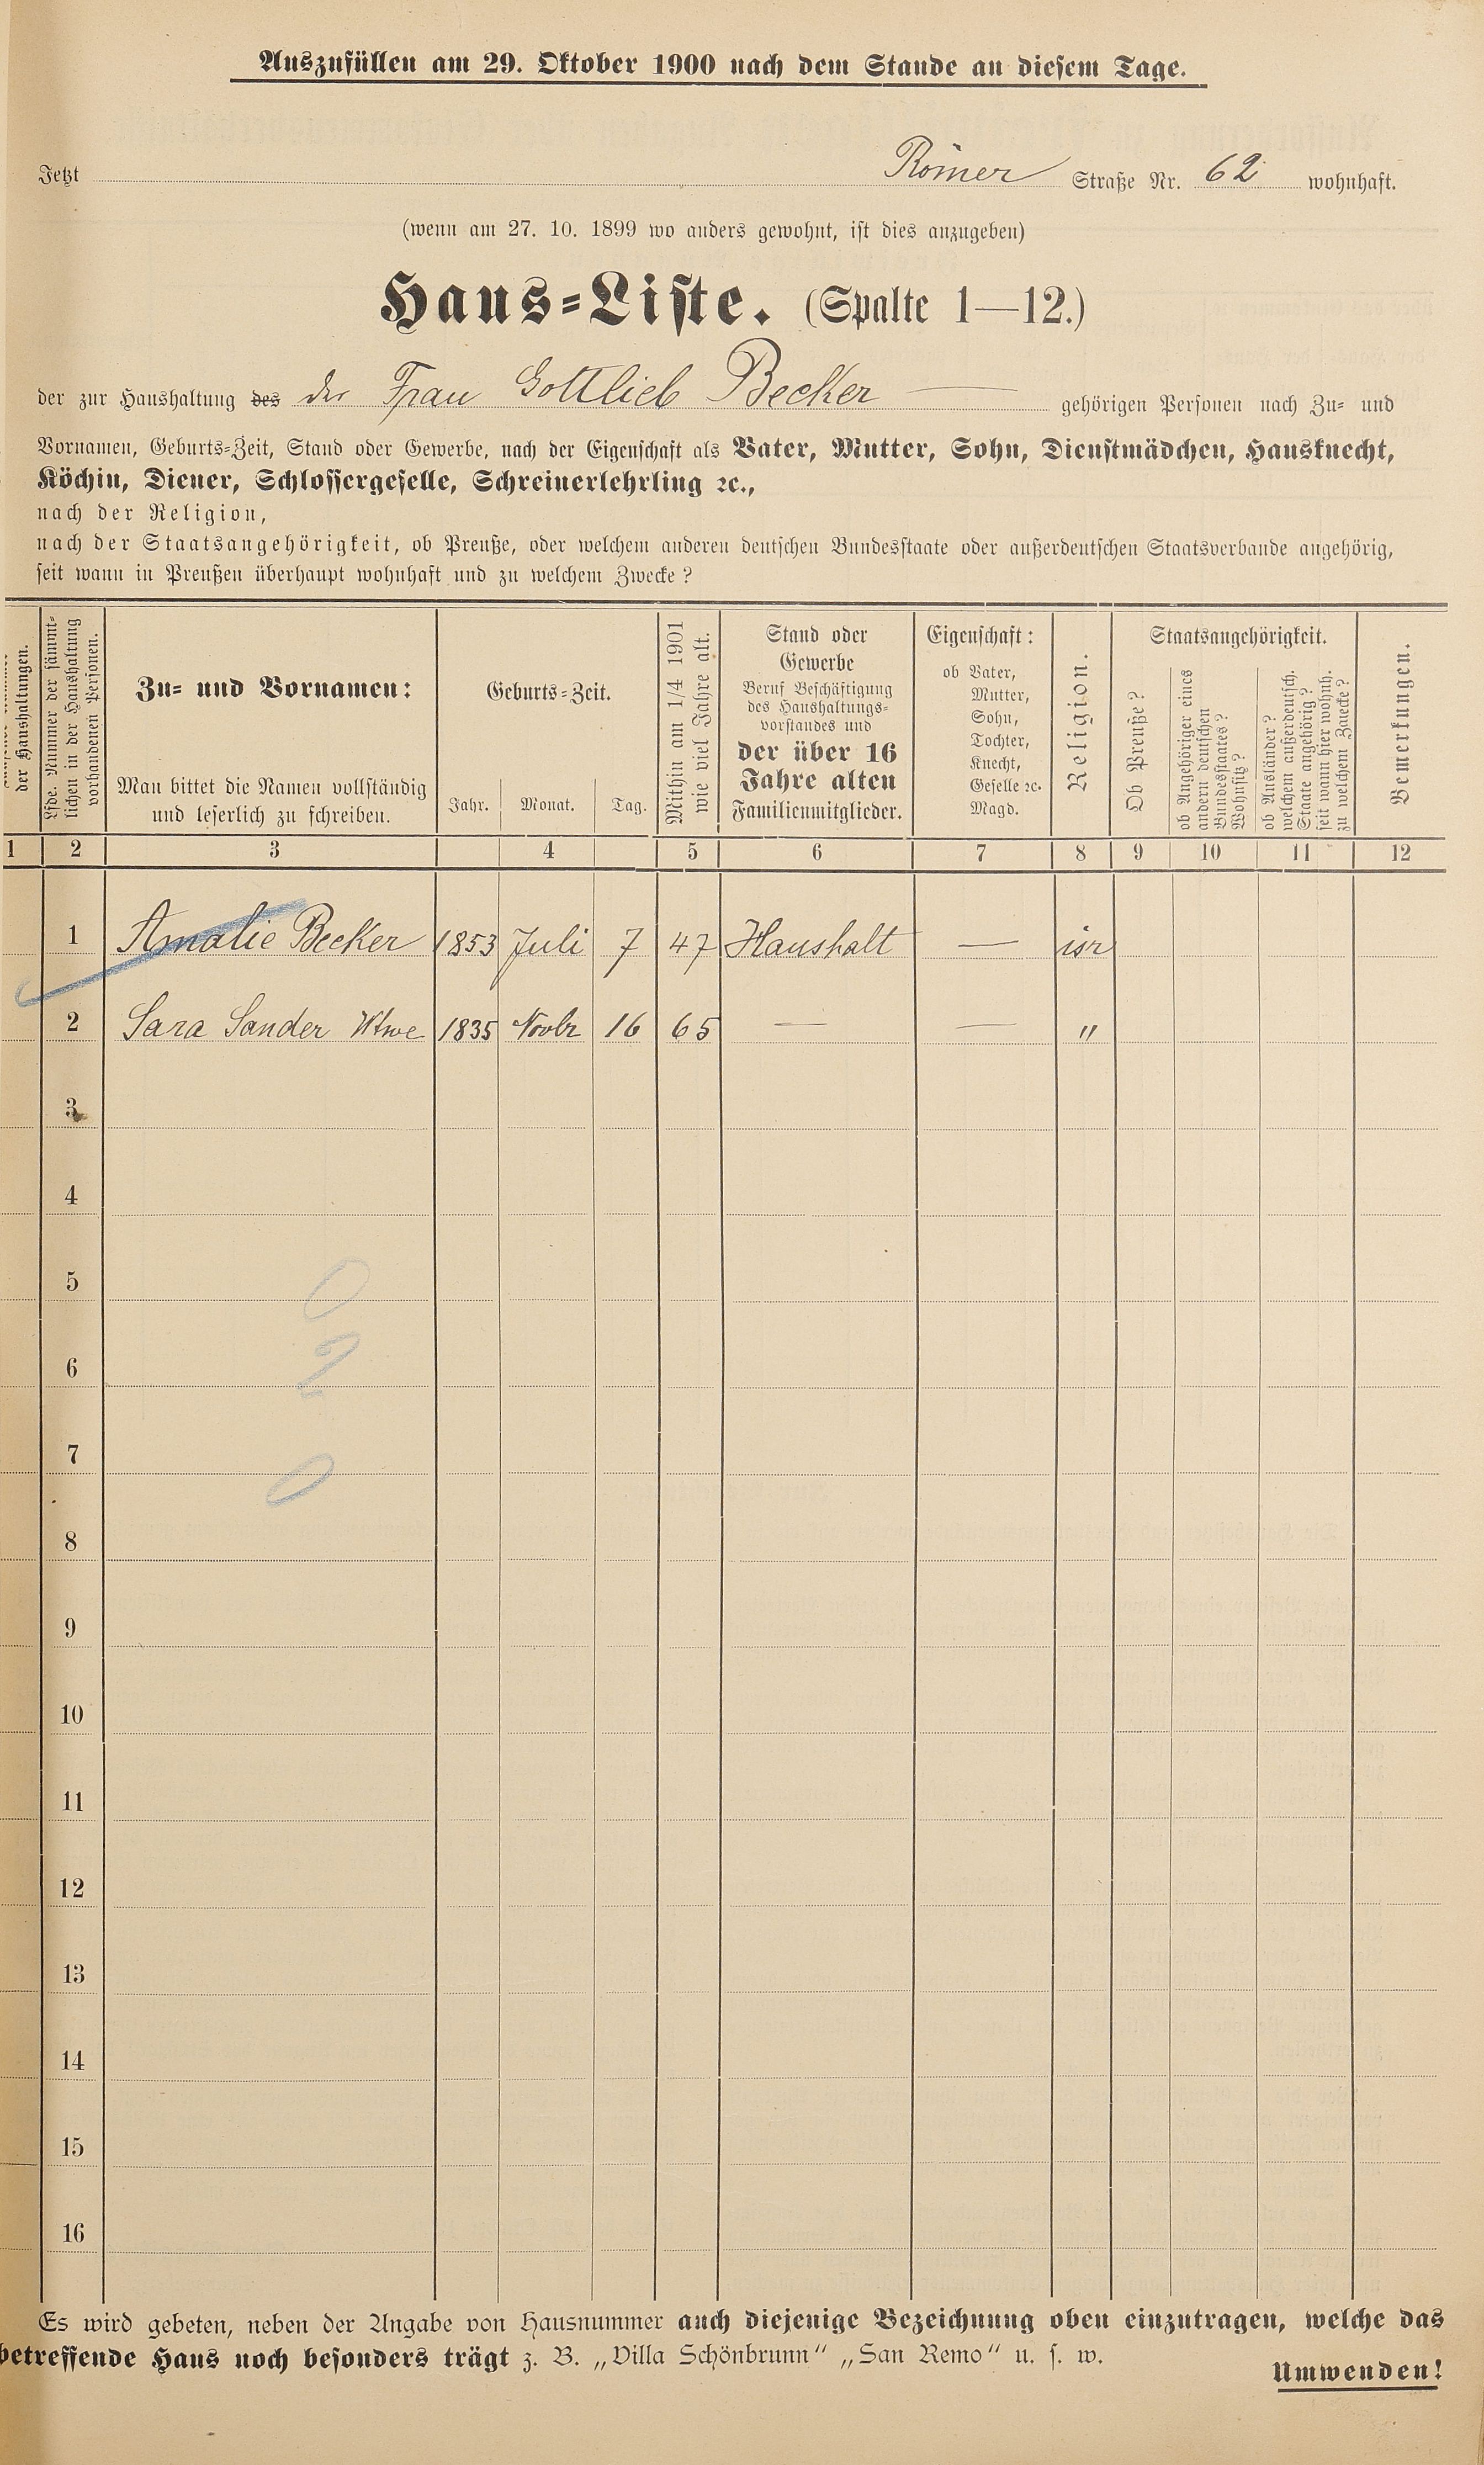 Auszufüllen am 29. Oktober 1900 nach dem Stande an diesem Tage.
Jetzt Römer Straße Nr. 62 wohnhaft.
(wenn am 27. 10. 1899 wo anders gewohnt, ist dies anzugeben)
Haus=Liste. (Spalte 1—12.)
der zur Haushaltung des der Frau Gottlieb Becker — gehörigen Personen nach Zu= und
Vornamen, Geburts=Zeit, Stand oder Gewerbe, nach der Eigenschaft als Vater, Mutter, Sohn, Dienstmädchen, Hausknecht,
Köchin, Diener, Schlossergeselle, Schreinerlehrling ꝛc.,
nach der Religion,
nach der Staatsangehörigkeit, ob Preuße, oder welchem anderen deutschen Bundesstaate oder außerdeutschen Staatsverbande angehörig,
seit wann in Preußen überhaupt wohnhaft und zu welchem Zwecke?
der Haushaltungen.
Lfde. Nummer der sämmt=
lichen in der Haushaltung
vorhandenen Personen.
Zu= und Vornamen:
Man bittet die Namen vollständig
und leserlich zu schreiben.
Geburts=Zeit.
Jahr. Monat. Tag.
Mithin am 1/4 1901
wie viel Jahre alt.
Stand oder
Gewerbe
Beruf Beschäftigung
des Haushaltungs=
vorstandes und
der über 16
Jahre alten
Familienmitglieder.
Eigenschaft:
ob Vater,
Mutter,
Sohn,
Tochter,
Knecht,
Geselle ꝛc.
Magd.
Religion.
Staatsangehörigkeit.
Ob Preuße?
ob Angehöriger eines
andern deutschen
Bundesstaates?
Wohnsitz?
ob Ausländer?
welchem außerdeutsch.
Staate angehörig?
seit wann hier wohnh.
zu welchem Zwecke?
Bemerkungen.
1 2 3 4 5 6 7 8 9 10 11 12
1 Amalie Becker 1853 Juli 7 47 Haushalt — isr
2 Sara Sander Wtwe 1835 Novbr 16 65 — — "
3
4
5
0
6
2
7
0
8
9
10
11
12
13
14
15
16
Es wird gebeten, neben der Angabe von Hausnummer auch diejenige Bezeichnung oben einzutragen, welche das
betreffende Haus noch besonders trägt z. B. „Villa Schönbrunn" „San Remo" u. s. w.
Umwenden!